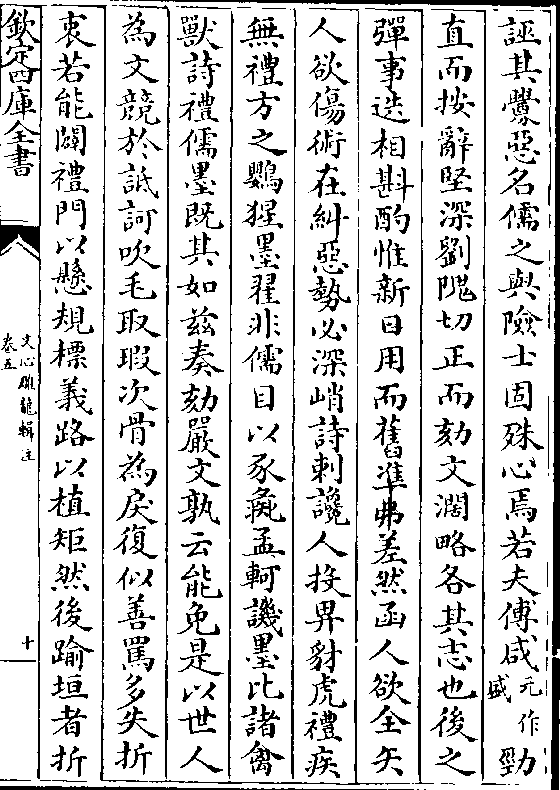 誣其釁惡名儒之與險士固殊心焉若夫傅咸元作盛勁
直而按辭堅深劉隗切正而劾文濶略各其志也後之
彈事迭相斟酌惟新日用而舊準弗差然函人欲全矢
人欲傷術在糾惡勢必深峭詩刺讒人投畀豺虎禮疾
無禮方之鸚猩墨翟非儒目以豕彘孟軻譏墨比諸禽
獸詩禮儒墨既其如茲奏劾嚴文孰云能免是以世人
為文競於詆訶吹毛取瑕次骨為戾復似善罵多失折
衷若能闢禮門以懸規標義路以植矩然後踰垣者折
欽定四庫全書
文心雕龍輯注
卷五
十